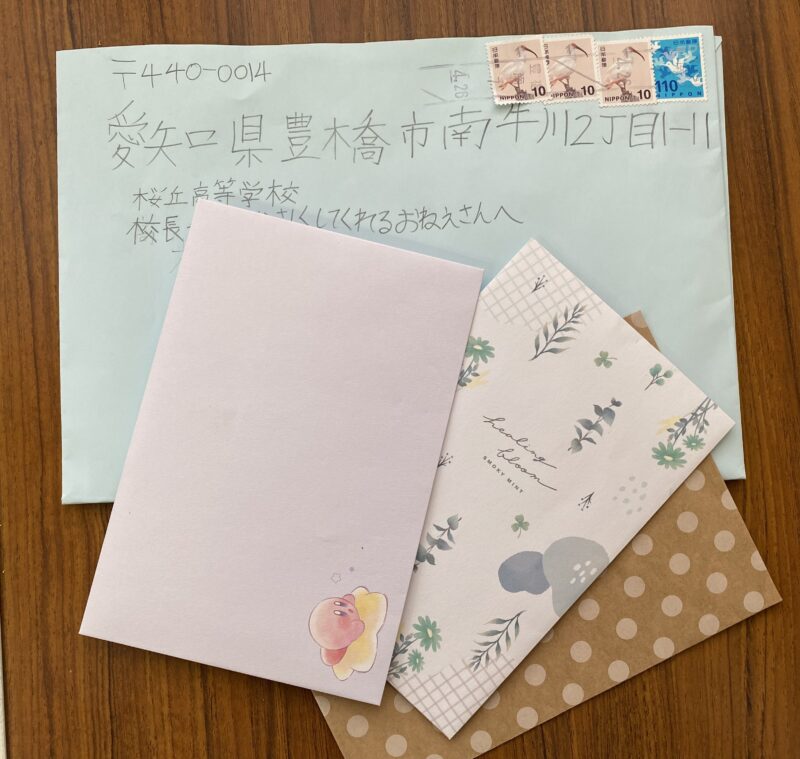 〒440-0014
愛知県豊橋市南牛川2丁目1-11
桜丘高等学校
校長
くしてくれてるおねえさんへ
日本郵便
NIPPON 10
日本郵便
NIPPON 10
日本郵便
NIPPON 10
日本郵便
110
NIPPON
healing
bloom
SMOKY MINT